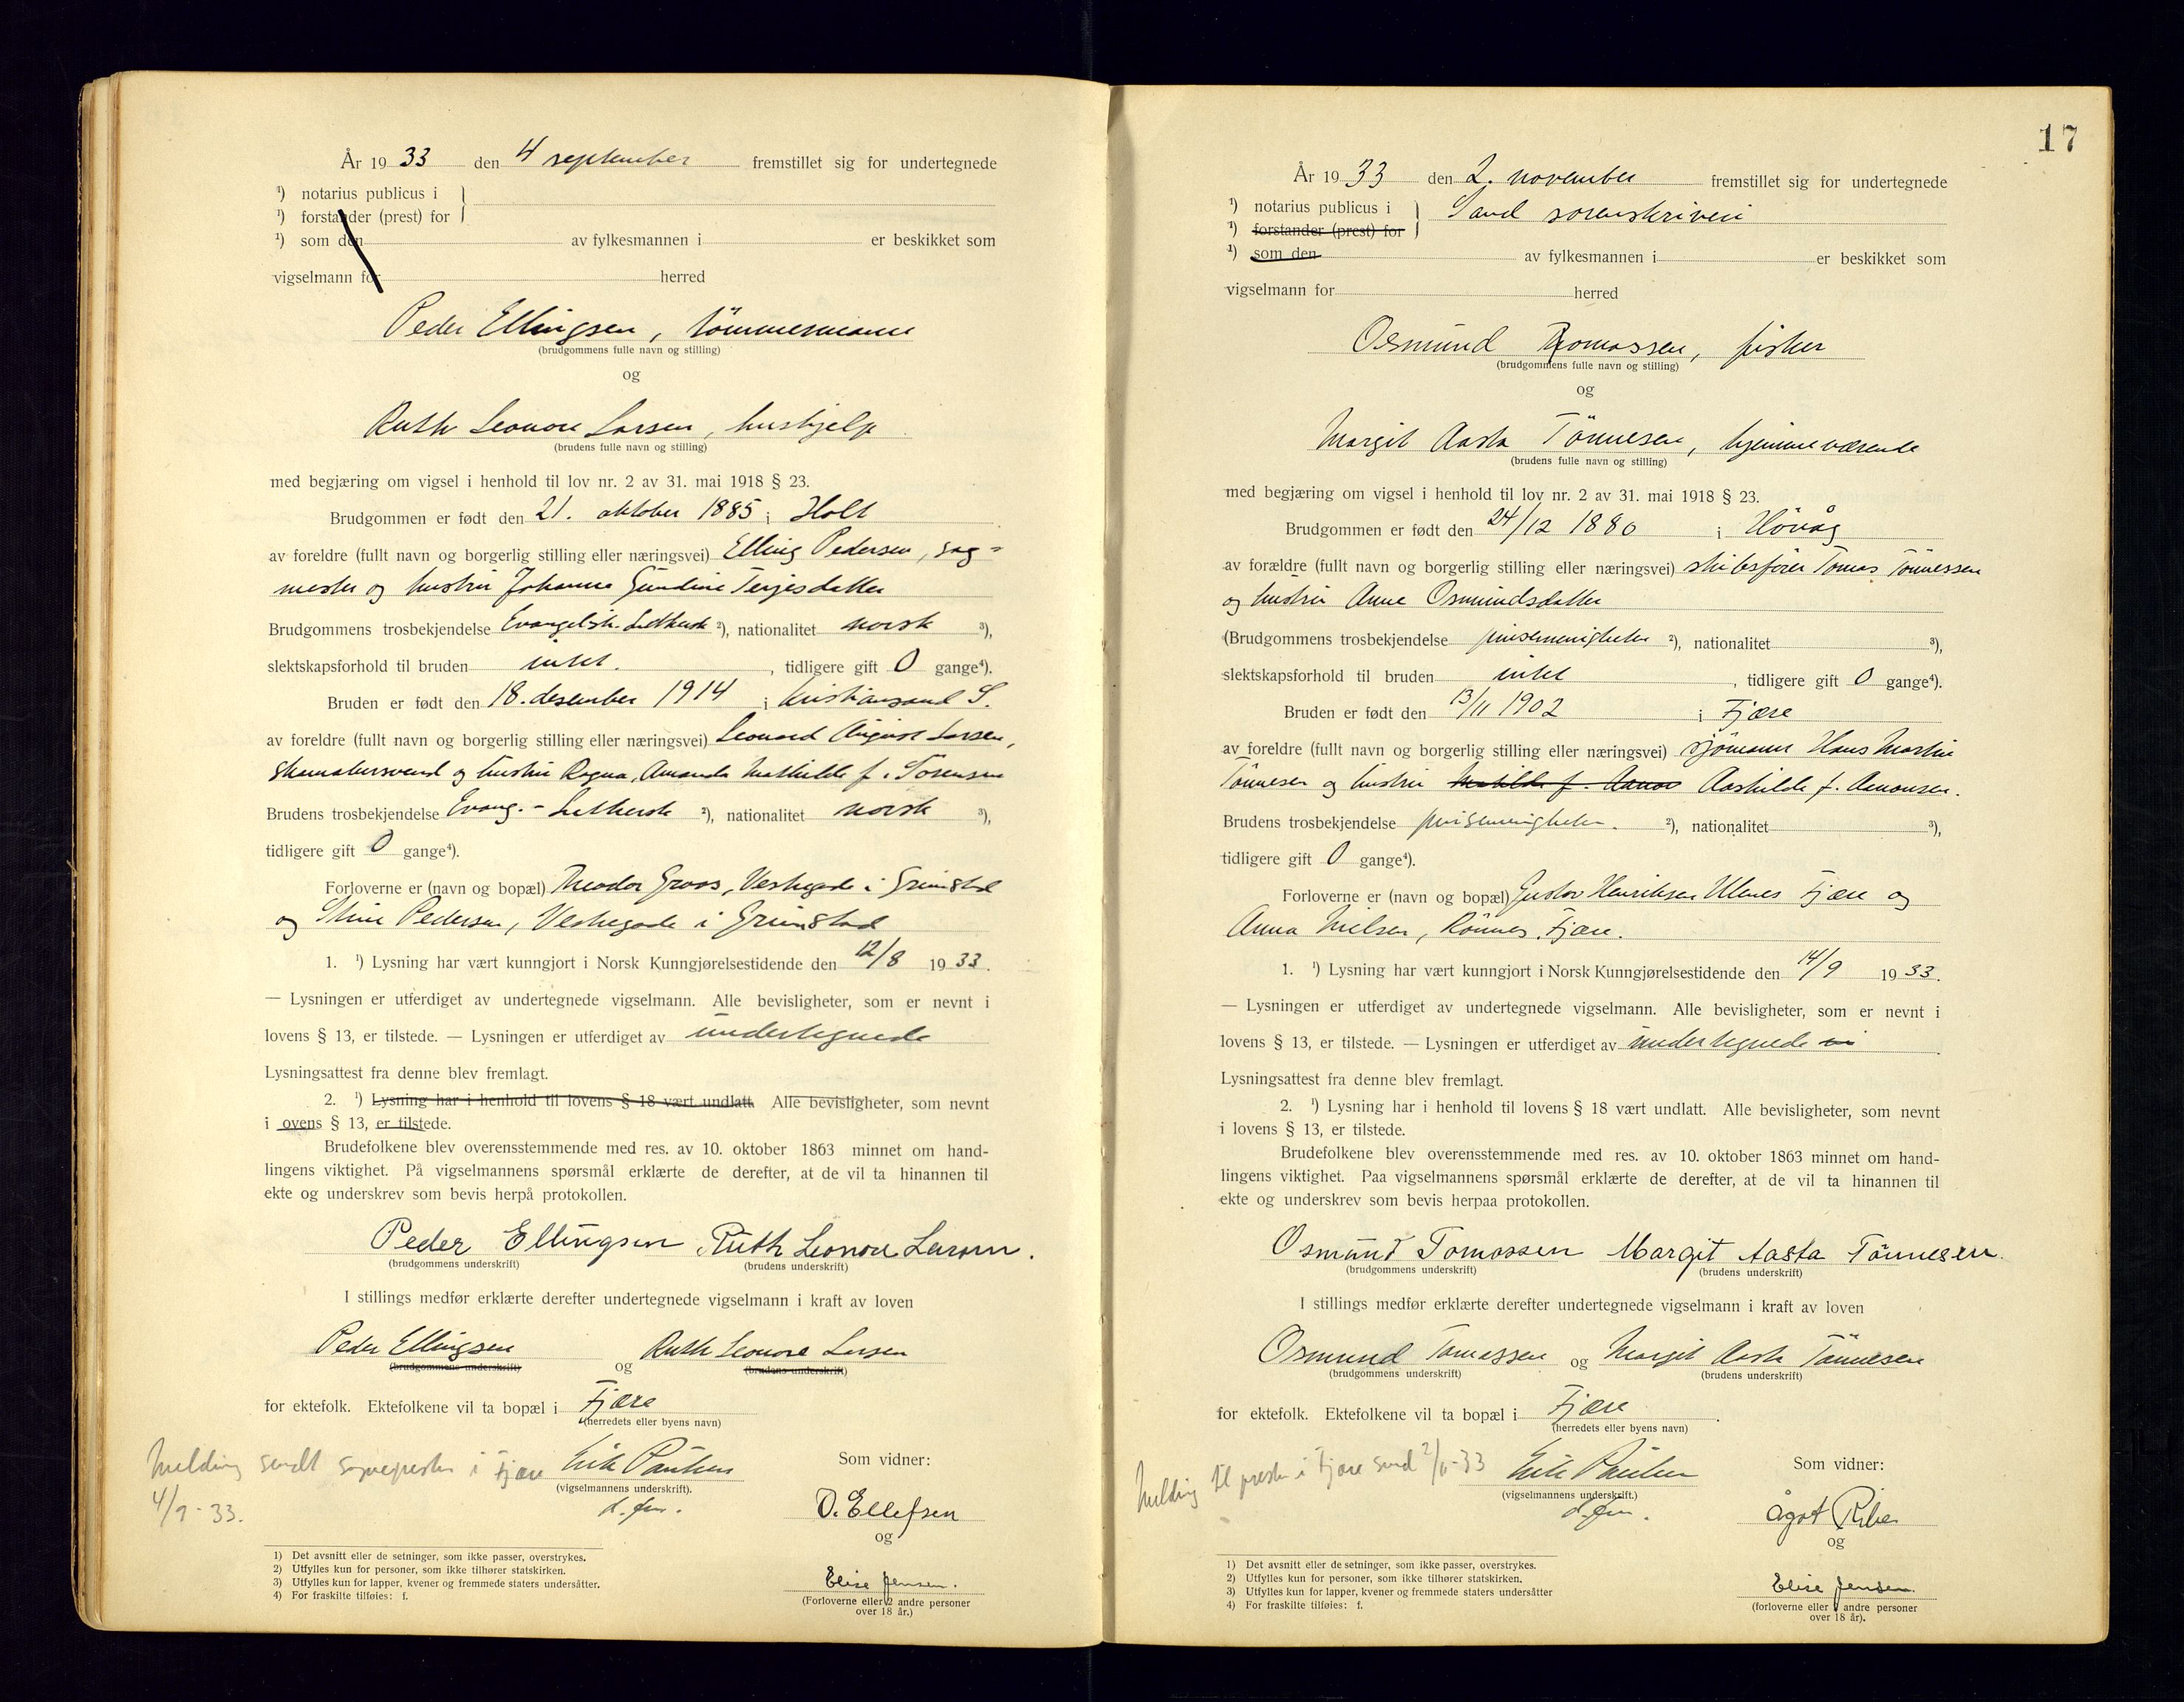 År 1933 den 4 september fremstillet sig for undertegnede
¹) notarius publicus i
¹) forstander (prest) for
¹) som den av fylkesmannen i er beskikket som
vigselmann for herred
Peder Ellingsen, tömmermann
(brudgommens fulle navn og stilling)
og
Ruth Leonore Larsen, hushjelp
(brudens fulle navn og stilling)
med begjæring om vigsel i henhold til lov nr. 2 av 31. mai 1918 § 23.
Brudgommen er født den 21. oktober 1885 i Holt
av foreldre (fullt navn og borgerlig stilling eller næringsvei) Elling Pedersen, sag-
mester og hustru Johanne Gundine Terjesdatter
Brudgommens trosbekjendelse Evangelisk-Luthersk ²), nationalitet norsk ³),
slektskapsforhold til bruden intet. , tidligere gift 0 gange⁴).
Bruden er født den 18. desember 1914 i Kristiansand S.
av foreldre (fullt navn og borgerlig stilling eller næringsvei) Leonard August Larsen,
skomakersvend og hustru Ragna, Amanda Mathilde f. Sörensen
Brudens trosbekjendelse Evang.-Luthersk ²), nationalitet norsk ³),
tidligere gift 0 gange⁴).
Forloverne er (navn og bopæl) Theodor Groos, Vestregade i Grimstad
og Stine Pedersen, Vestregade i Grimstad
1. ¹) Lysning har vært kunngjort i Norsk Kunngjørelsestidende den 12/8 1933.
— Lysningen er utferdiget av undertegnede vigselmann. Alle bevisligheter, som er nevnt i
lovens § 13, er tilstede. — Lysningen er utferdiget av undertegnede
Lysningsattest fra denne blev fremlagt.
2. ¹) Lysning har i henhold til lovens § 18 vært undlatt. Alle bevisligheter, som nevnt
i ovens § 13, er tilstede.
Brudefolkene blev overensstemmende med res. av 10. oktober 1863 minnet om hand-
lingens viktighet. På vigselmannens spørsmål erklærte de derefter, at de vil ta hinannen til
ekte og underskrev som bevis herpå protokollen.
Peder Ellingsen Ruth Leonore Larsen.
(brudgommens underskrift) (brudens underskrift)
I stillings medfør erklærte derefter undertegnede vigselmann i kraft av loven
Peder Ellingsen og Ruth Leonore Larsen
(brudgommens underskrift) (brudens underskrift)
for ektefolk. Ektefolkene vil ta bopæl i Fjære
(herredets eller byens navn)
Melding sendt sognepresten i Fjære
4/9-33.
Erik Paulsen
(vigselmannens underskrift).
d. fm.
Som vidner:
O. Ellefsen
og
Elise Jensen.
(Forloverne eller 2 andre personer
over 18 år.)
1) Det avsnitt eller de setninger, som ikke passer, overstrykes.
2) Utfylles kun for personer, som ikke tilhører statskirken.
3) Utfylles kun for lapper, kvener og fremmede staters undersåtter.
4) For fraskilte tilføies: f.
17
År 1933 den 2. november fremstillet sig for undertegnede
¹) notarius publicus i Sand sorenskriveri
¹) forstander (prest) for
¹) som den av fylkesmannen i er beskikket som
vigselmann for herred
Osmund Tomassen, fisker
(brudgommens fulle navn og stilling)
og
Margit Aasta Tönnesen, hjemmeværende
(brudens fulle navn og stilling)
med begjæring om vigsel i henhold til lov nr. 2 av 31. mai 1918 § 23.
Brudgommen er født den 24/12 1880 i Hövåg
av forældre (fullt navn og borgerlig stilling eller næringsvei) skibsfører Tomas Tönnessen
og hustru Anne Osmundsdatter
(Brudgommens trosbekjendelse pinsemenigheten ²), nationalitet ³),
slektskapsforhold til bruden intet , tidligere gift 0 gange⁴).
Bruden er født den 13/11 1902 i Fjære
av foreldre (fullt navn og borgerlig stilling eller næringsvei) sjömann Hans Martin
Tönnesen og hustru Matilde f. Aanon Aashilde f. Aanonsen.
Brudens trosbekjendelse pinsemenigheten. ²), nationalitet ³),
tidligere gift 0 gange⁴).
Forloverne er (navn og bopæl) Gustav Henriksen Ulenes Fjære og
Anna Nielsen, Rönnes, Fjære.
1. ¹) Lysning har vært kunngjort i Norsk Kunngjørelsestidende den 14/9 1933.
— Lysningen er utferdiget av undertegnede vigselmann. Alle bevisligheter, som er nevnt i
lovens § 13, er tilstede. — Lysningen er utferdiget av undertegnede
Lysningsattest fra denne blev fremlagt.
2. ¹) Lysning har i henhold til lovens § 18 vært undlatt. Alle bevisligheter, som nevnt
i lovens § 13, er tilstede.
Brudefolkene blev overensstemmende med res. av 10. oktober 1863 minnet om hand-
lingens viktighet. Paa vigselmannens spørsmål erklærte de derefter, at de vil ta hinannen til
ekte og underskrev som bevis herpaa protokollen.
Osmund Tomassen Margit Aasta Tönnesen.
(brudgommens underskrift) (brudens underskrift)
I stillings medfør erklærte derefter undertegnede vigselmann i kraft av loven
Osmund Tomassen og Margit Aasta Tönnesen
(brudgommens underskrift) (brudens underskrift)
for ektefolk. Ektefolkene vil ta bopæl i Fjære .
(herredets eller byens navn)
Melding til presten i Fjære send 2/11-33
Erik Paulsen
(vigselmannens underskrift.)
d. fm.
Som vidner:
Ågot Riber
og
Elise Jensen.
(forloverne eller 2 andre personer
over 18 år).
1) Det avsnitt eller de setninger, som ikke passer, overstrykes.
2) Utfylles kun for personer, som ikke tilhører statskirken.
3) Utfylles kun for lapper, kvener og fremmede staters undersåtter
4) For fraskilte tilføies: f.